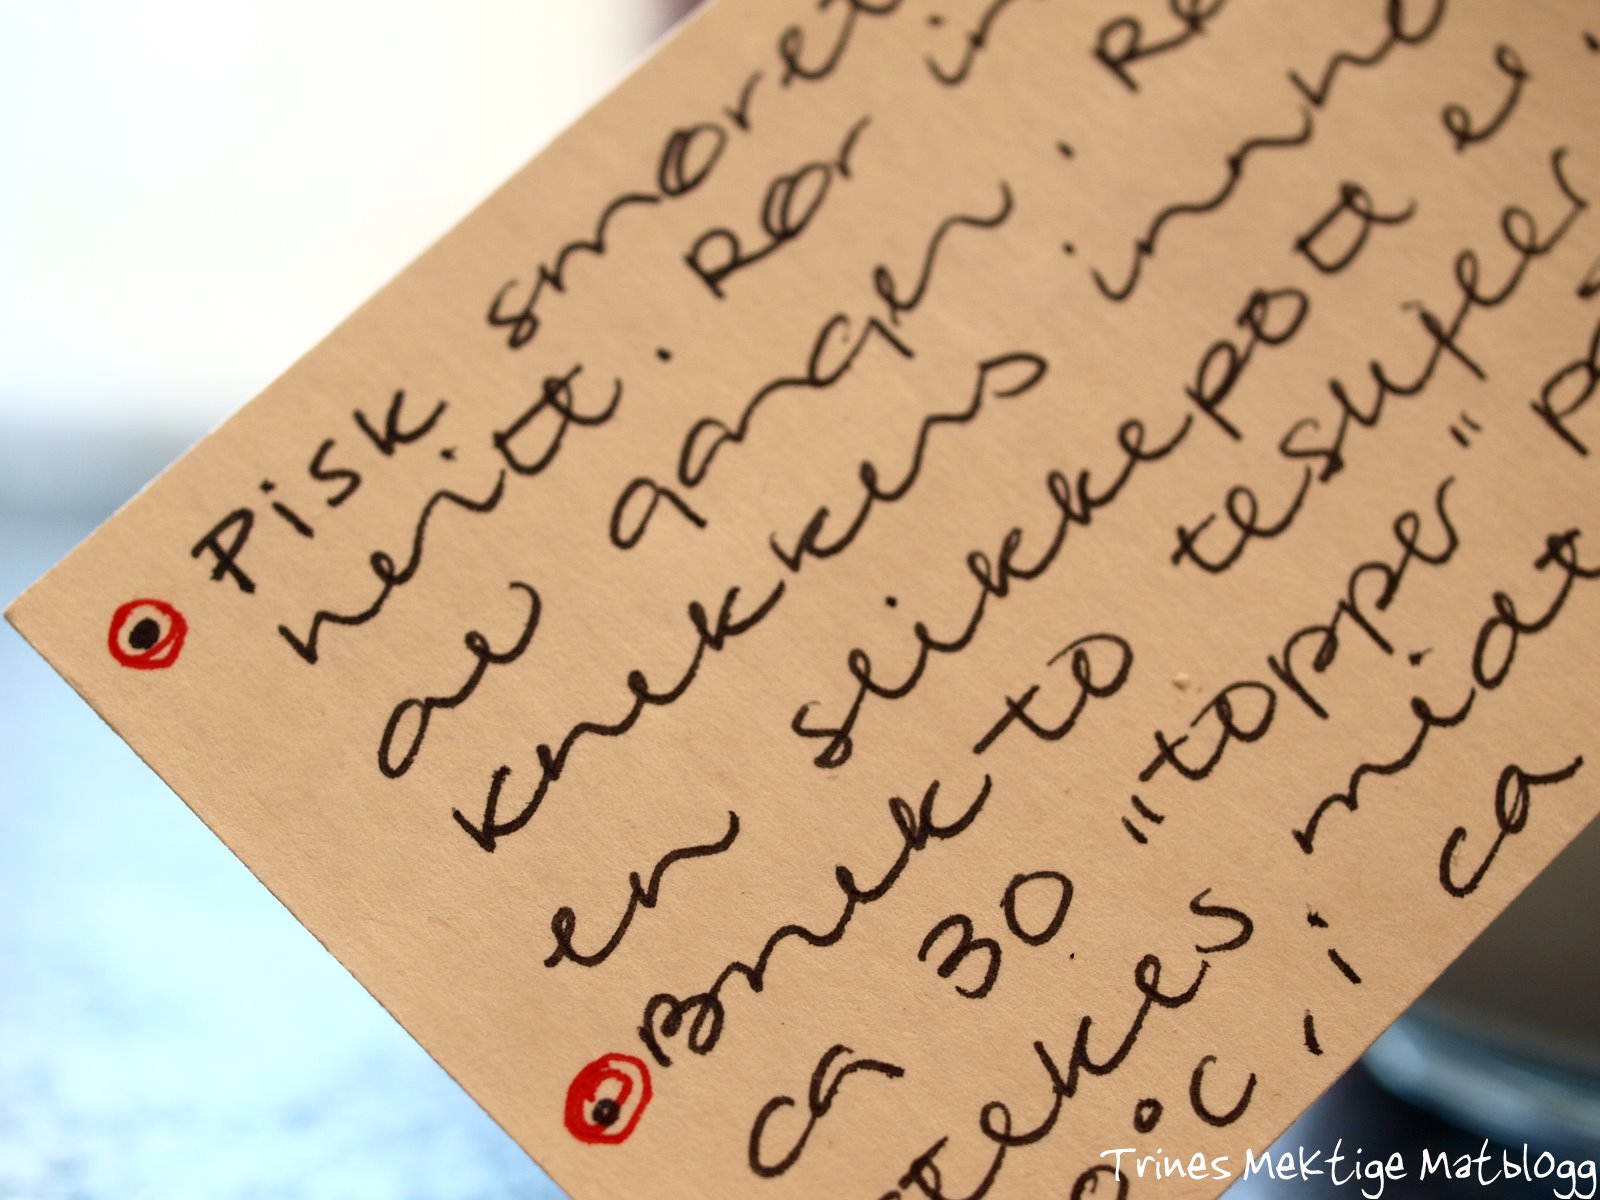 Pisk smøret
hvitt. Rør in
av gangen. Rø
knekkes innho
en
Bruk to teskjeer
ca 30 "topper" på
stekes midt
°C, i ca
Trines Mektige Matblogg